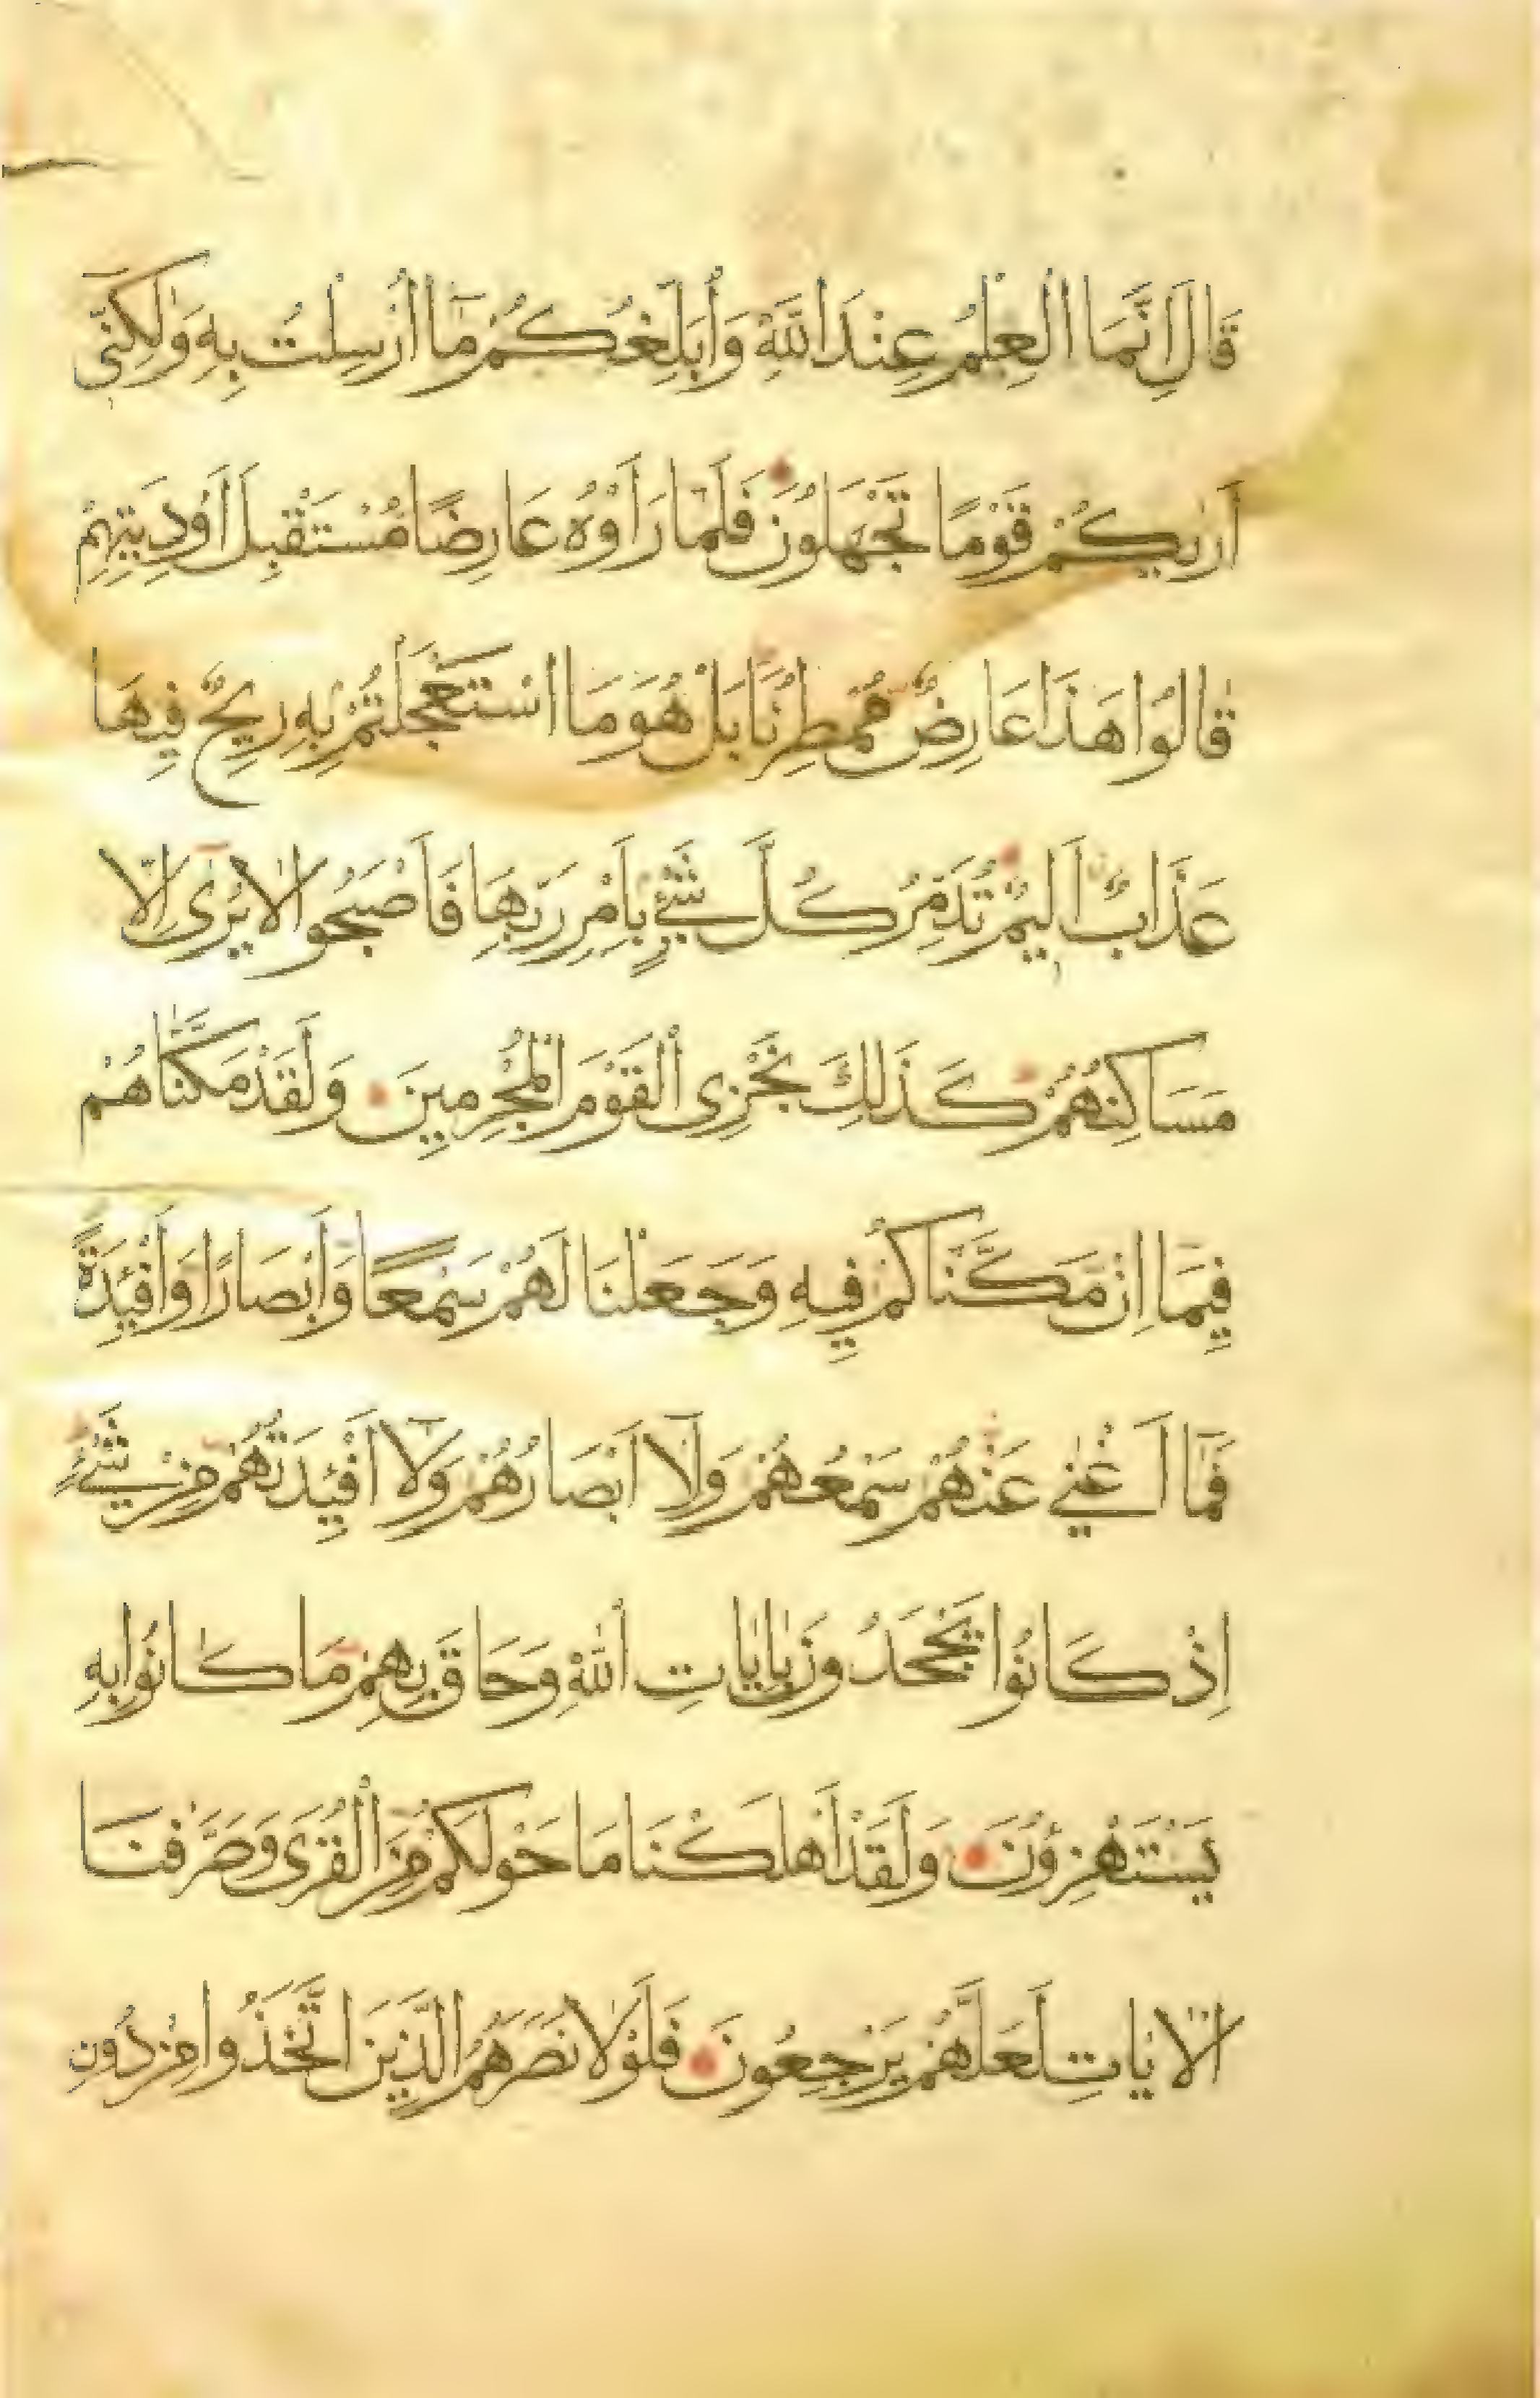 قَالَ اِنَّمَا الْعِلْمُ عِنْدَ اللّٰهِ وَاُبَلِّغُكُمْ مَٓا اُرْسِلْتُ بِهٖ وَلٰكِنّٖٓى
اَرٰيكُمْ قَوْمًا تَجْهَلُونَ فَلَمَّا رَاَوْهُ عَارِضًا مُسْتَقْبِلَ اَوْدِيَتِهِمْ
قَالُوا هَذَا عَارِضٌ مُمْطِرُنَا بَلْ هُوَ مَا اسْتَعْجَلْتُمْ بِهِ رِيحٌ فِيهَا
عَذَابٌ اَلِيمٌ تُدَمِّرُ كُلَّ شَيْءٍ بِاَمْرِ رَبِّهَا فَاَصْبَحُوا لَا يُرٰٓى اِلَّا
مَسَاكِنُهُمْ كَذَلِكَ نَجْزِى الْقَوْمَ الْمُجْرِمِينَ وَلَقَدْ مَكَّنَّاهُمْ
فِيمَا اِنْ مَكَّنَّاكُمْ فِيهِ وَجَعَلْنَا لَهُمْ سَمْعًا وَاَبْصَارًا وَاَفْئِدَةً
فَمَٓا اَغْنٰي عَنْهُمْ سَمْعُهُمْ وَلَٓا اَبْصَارُهُمْ وَلَٓا اَفْئِدَتُهُمْ مِنْ شَيْءٍ
اِذْ كَانُوا يَجْحَدُونَ بِاٰيَاتِ اللّٰهِ وَحَاقَ بِهِمْ مَا كَانُوا بِهِ
يَسْتَهْزِؤُنَ وَلَقَدْ اَهْلَكْنَا مَا حَوْلَكُمْ مِنَ الْقُرَى وَصَرَّفْنَا
الْاٰيَاتِ لَعَلَّهُمْ يَرْجِعُونَ فَلَوْلَا نَصَرَهُمُ الَّذِينَ اتَّخَذُوا مِنْ دُونِ